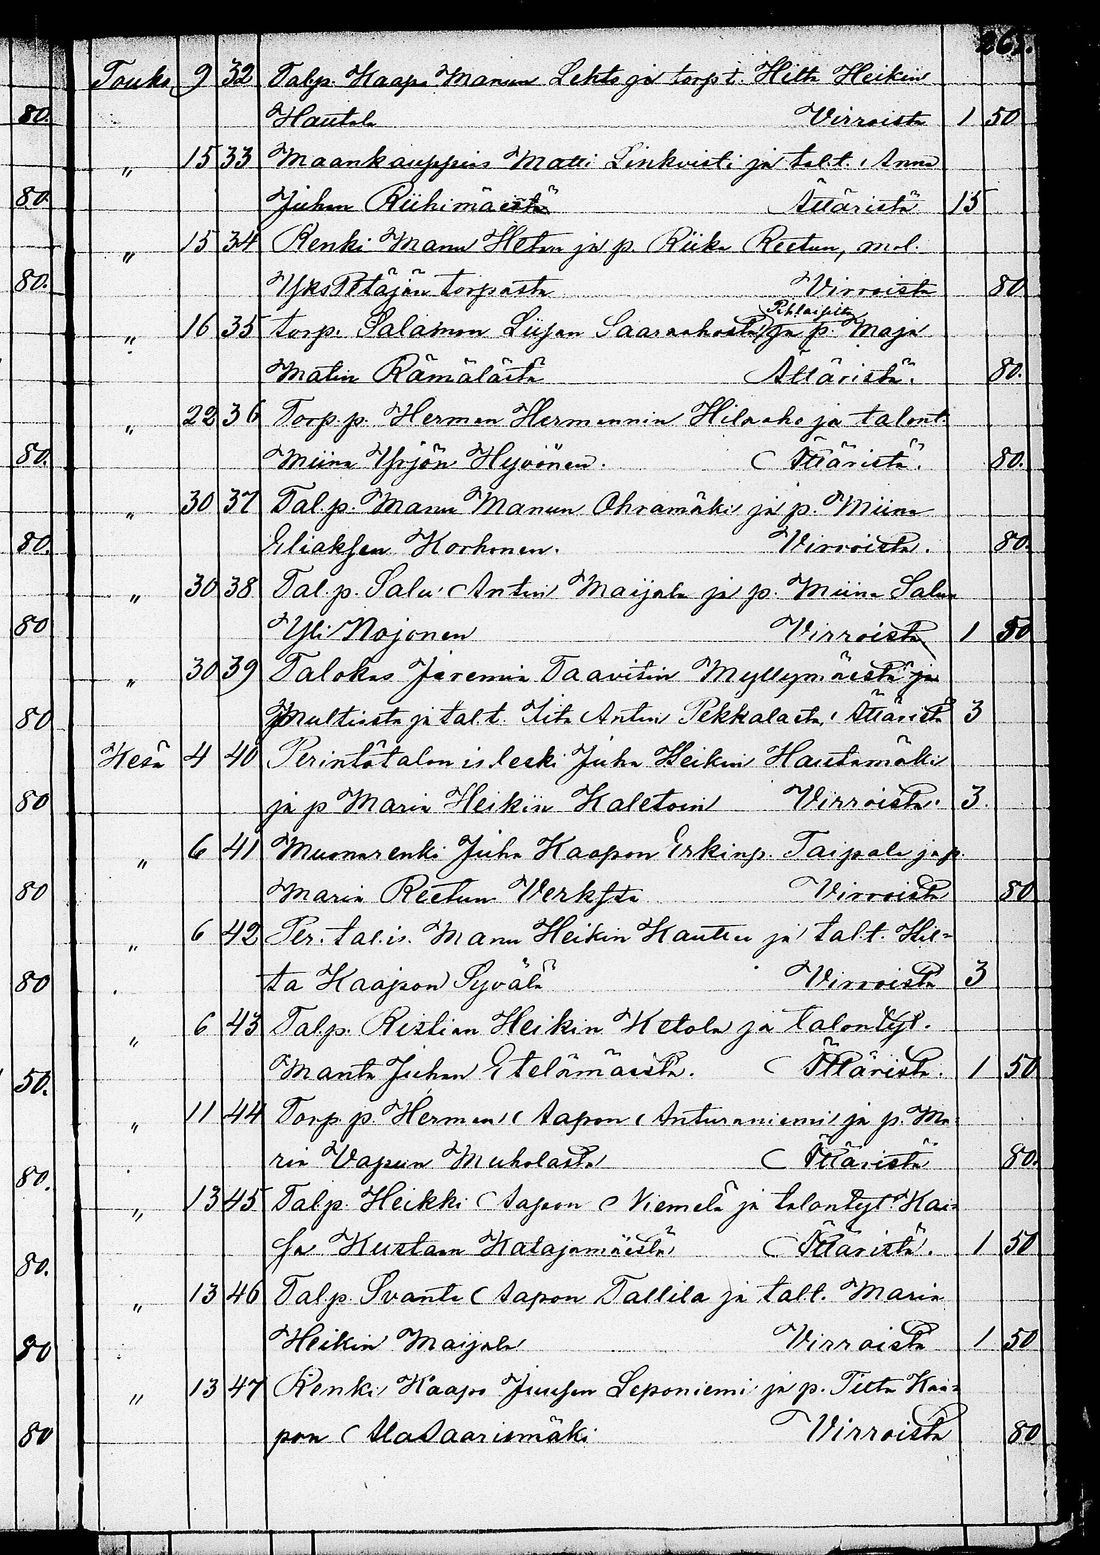 265.
Touko 9 32 Talp. Kaapo Manun Lehto ja torp t. Hilta Heikin
80. Hautala Virroista 1 50
„ 15 33 Maankauppias Matti Linkvisti ja tal.t. Anna
80. Juhan Riihimäestä Ätäristä 15
„ 15 34 Renki Manu Hetun ja p. Riika Reetun, mol.
80. Yks Petäjän torpasta Virroista 80
Pihlaisilta
„ 16 35 torp. Salamon Liisan Saaraahosta ja p. Maja
Matin Rämälästä Ätäristä. 80.
„ 22 36 Torp. p. Herman Hermannin Hilaaho ja talont.
80. Miina Yrjön Hyvönen. Ätäristä. 80.
„ 30 37 Tal.p. Manu Manun Ohramäki ja p. Miina
80. Eliaksen Korhonen. Virroista. 80.
„ 30 38 Tal.p. Salu Antin Maijala ja p. Miina Salun
80 Yli Nojonen Virroista 1 50
„ 30 39 Talokas Jeremia Taavitin Myllymäestä ja
80 Multiasta ja tal t. Iita Antin Pekkalasta, Ätäristä 3
Kesä 4 40 Perintötalon is. leski Juha Heikin Hautamäki
80 ja p Maria Heikin Kaletoin Virroista. 3.
„ 6 41 Muonarenki Juha Kaapon Erkinp. Taipale ja p.
80 Maria Reetun Verksta Virroista 80
„ 6 42 Per. tal. is. Manu Heikin Kauttu ja tal t. Hil-
80 ta Kaapon Syvälä Virroista 3
„ 6 43 Talp. Ristian Heikin Ketola ja talontyt.
50. Manta Juhan Etelämäestä. Ätäristä. 1 50
„ 11 44 Torp. p. Herman Aapon Anturaniemi ja p. Ma-
80. ria Vapun Muholasta Ätäristä 80.
„ 13 45 Talp. Heikki Aapon Niemelä ja talontyt. Kai-
80. sa Kustaan Katajamäestä Ätäristä. 1 50
„ 13 46 Talp. Svante Aapon Tallila ja talt. Maria
80 Heikin Maijala Virroista 1 50
„ 13 47 Renki Kaapo Juusen Leponiemi ja p. Tilta Kaa-
80 pon Ala Saarismäki Virroista 80